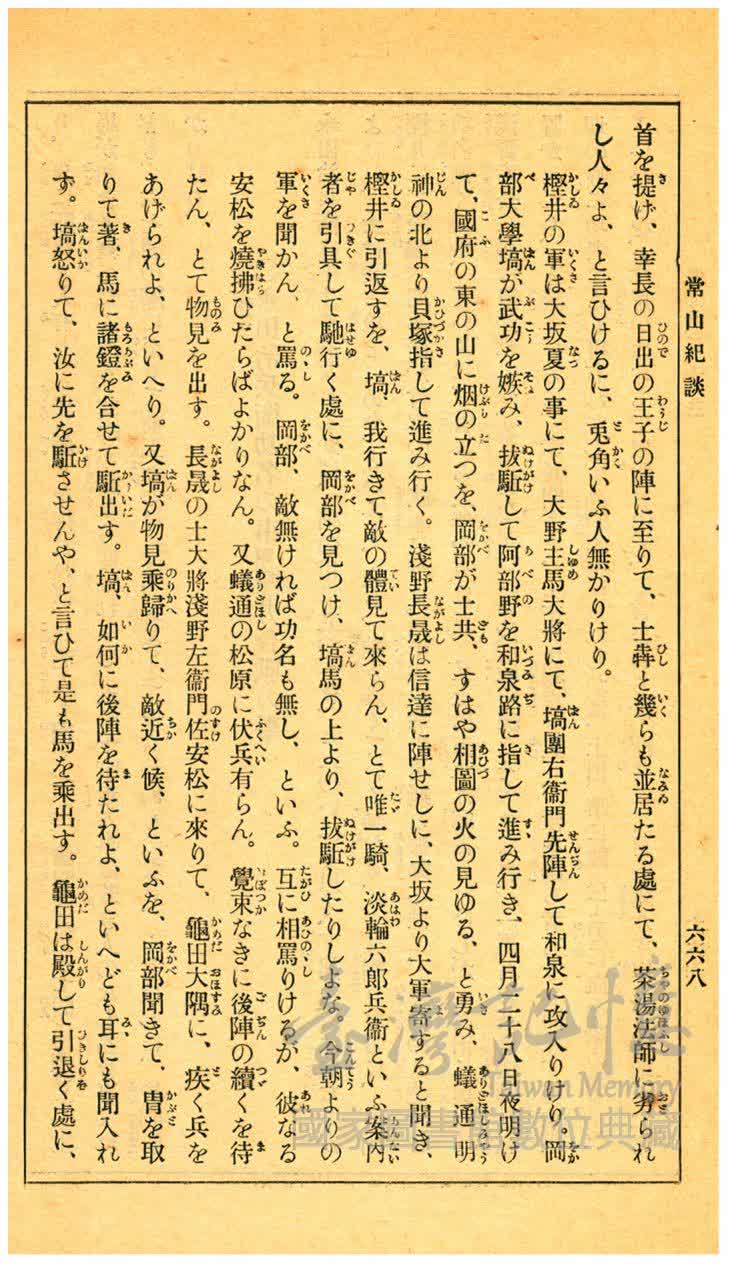 常山紀談
六六八
首を提げ、幸長の日出の王子の陣に至りて、士犇と幾らも並居たる處にて、茶湯法師に劣られ
し人々よ、と言ひけるに、兎角いふ人無かりけり。
樫井の軍は大坂夏の事にて、大野主馬大將にて、塙團右衞門先陣して和泉に攻入りけり。岡
部大學塙が武功を嫉み、拔駈して阿部野を和泉路に指して進み行き、四月二十八日夜明け
て、國府の東の山に烟の立つを、岡部が士共、すはや相圖の火の見ゆる、と勇み、蟻通明
神の北より貝塚指して進み行く。淺野長晟は信達に陣せしに、大坂より大軍寄すると聞き、
樫井に引返すを、塙、我行きて敵の體見て來らん、とて唯一騎、淡輪六郎兵衞といふ案内
者を引具して馳行く處に、岡部を見つけ、塙馬の上より、拔駈したりしよな。今朝よりの
軍を聞かん、と罵る。岡部、敵無ければ功名も無し、といふ。互に相罵りけるが、彼なる
安松を燒拂ひたらばよかりなん。又蟻通の松原に伏兵有らん。覺束なきに後陣の續くを待
たん、とて物見を出す。長晟の士大將淺野左衞門佐安松に來りて、龜田大隅に、疾く兵を
あげられよ、といへり。又塙が物見乘歸りて、敵近く候、といふを、岡部聞きて、冑を取
りて著、馬に諸鐙を合せて駈出す。塙、如何に後陣を待たれよ、といへども耳にも聞入れ
ず。塙怒りて、汝に先を駈させんや、と言ひて是も馬を乘出す。龜田は殿して引退く處に、
臺灣記憶
Taiwan Memory
國家圖書館數位典藏